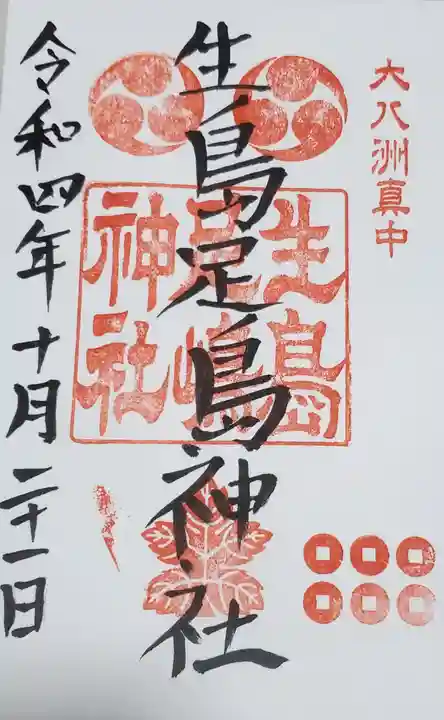 大八洲真中
生島足島神社
生島
足嶋
神社
令和四年十月二十一日